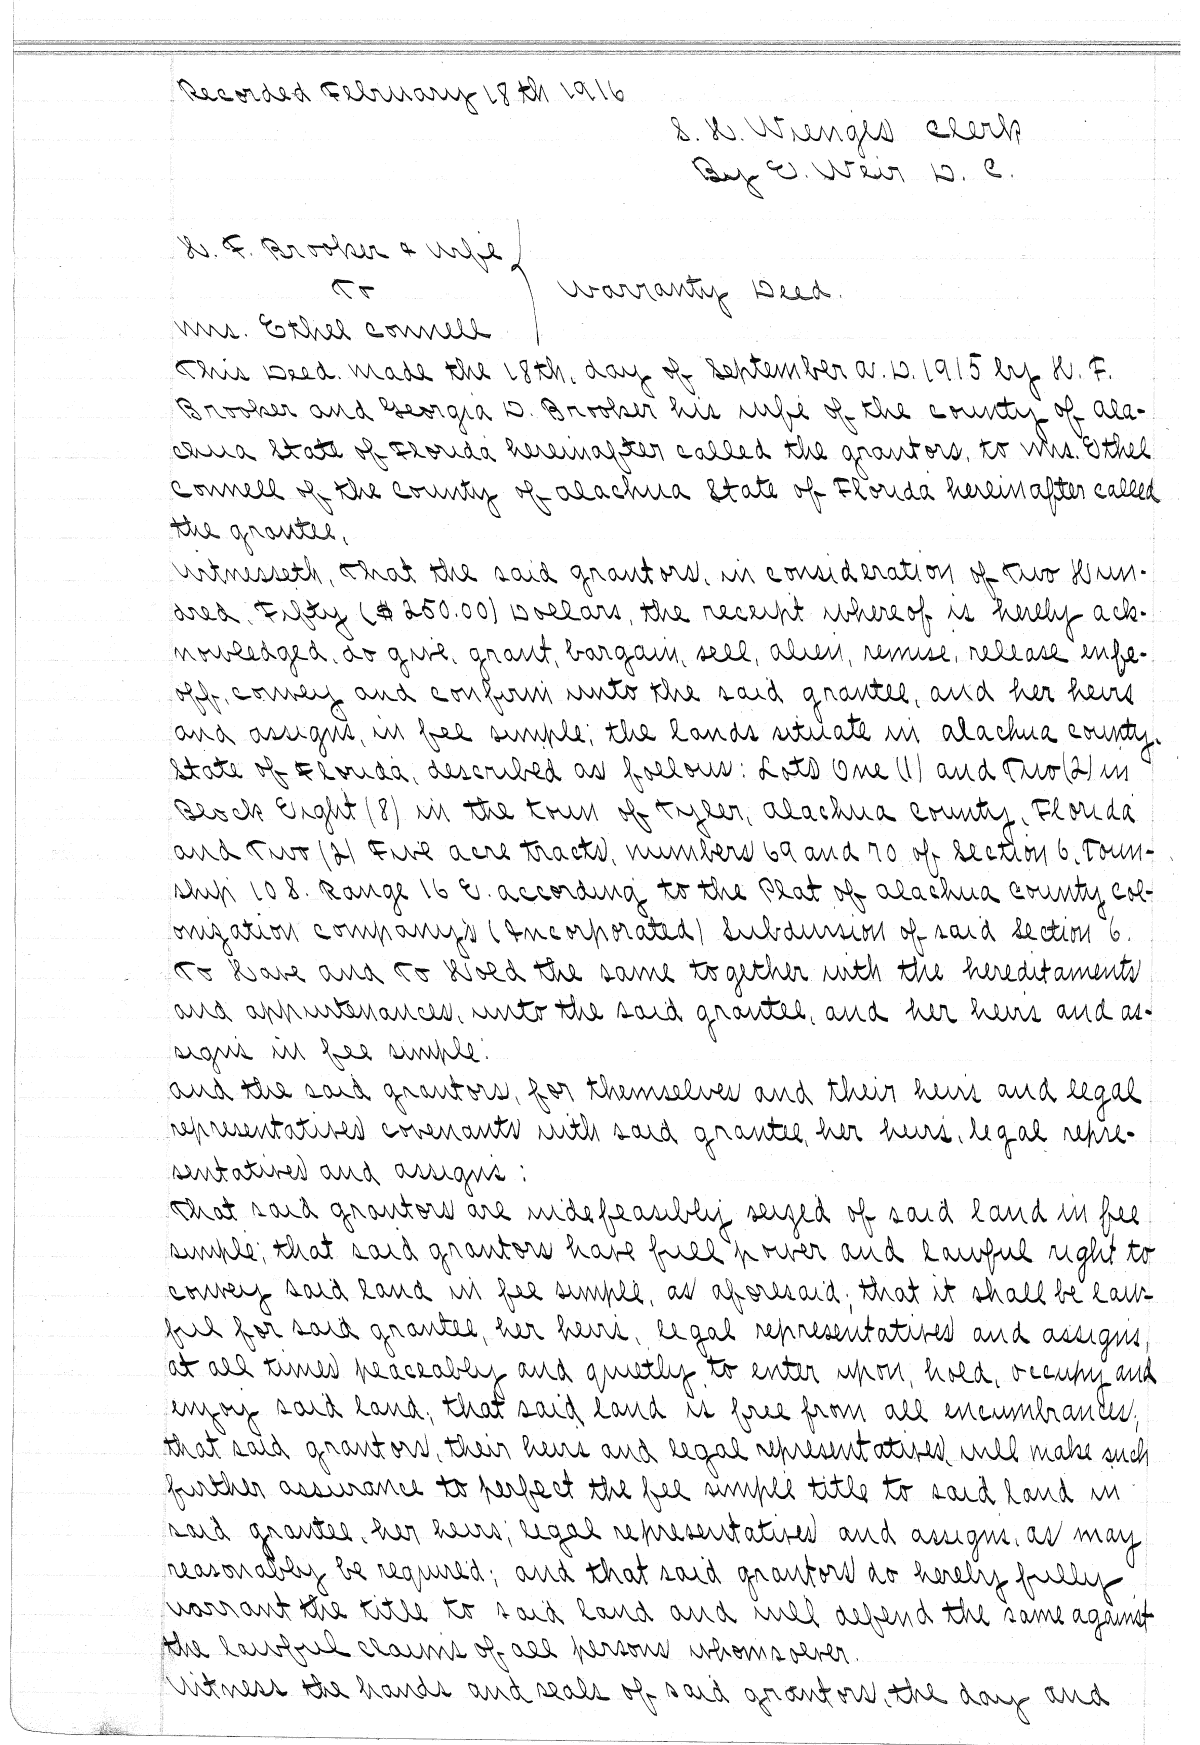 Recorded February 18th 1916
S. H. Wienges Clerk
By E. Weir D. C.
H. F. Brooker & wife
To
Warranty Deed.
Mrs. Ethel Connell
This Deed. Made the 18th, day of September A. D. 1915 by H. F.
Brooker and Georgia D. Brooker his wife of the county of Ala-
chua State of Florida hereinafter called the grantors, to Mrs. Ethel
Connell of the county of Alachua State of Florida hereinafter called
the grantee,
Witnesseth, That the said grantors, in consideration of Two Hun-
dred, Fifty ($250.00) Dollars, the receipt whereof is hereby ack-
nowledged, do give, grant, bargain, sell, alien, remise, release enfe-
off, convey and confirm unto the said grantee, and her heirs
and assigns, in fee simple; the lands situate in Alachua county,
State of Florida, described as follows: Lots One (1) and Two (2) in
Block Eight (8) in the town of Tyler, Alachua county, Florida
and Two (2) Five acre tracts, numbers 69 and 70 of Section 6, Town-
ship 10 S. Range 16 E. according to the Plat of Alachua county Col-
onization company's (Incorporated) Subdivision of said Section 6.
To Have and To Hold the same together with the hereditaments
and appurtenances, unto the said grantee, and her heirs and as-
signs in fee simple.
And the said grantors, for themselves and their heirs and legal
representatives covenants with said grantee, her heirs, legal repre-
sentatives and assigns:
That said grantors are indefeasibly seized of said land in fee
simple; that said grantors have full power and lawful right to
convey said land in fee simple, as aforesaid; that it shall be law-
ful for said grantee, her heirs, legal representatives and assigns,
at all times peaceably and quietly to enter upon, hold, occupy and
enjoy said land; that said land is free from all encumbrances;
that said grantors, their heirs and legal representatives, will make such
further assurance to perfect the fee simple title to said land in
said grantee, her heirs, legal representatives and assigns, as may
reasonably be required; and that said grantors do hereby fully
warrant the title to said land and will defend the same against
the lawful claims of all persons whomsoever.
Witness the hands and seals of said grantors, the day and